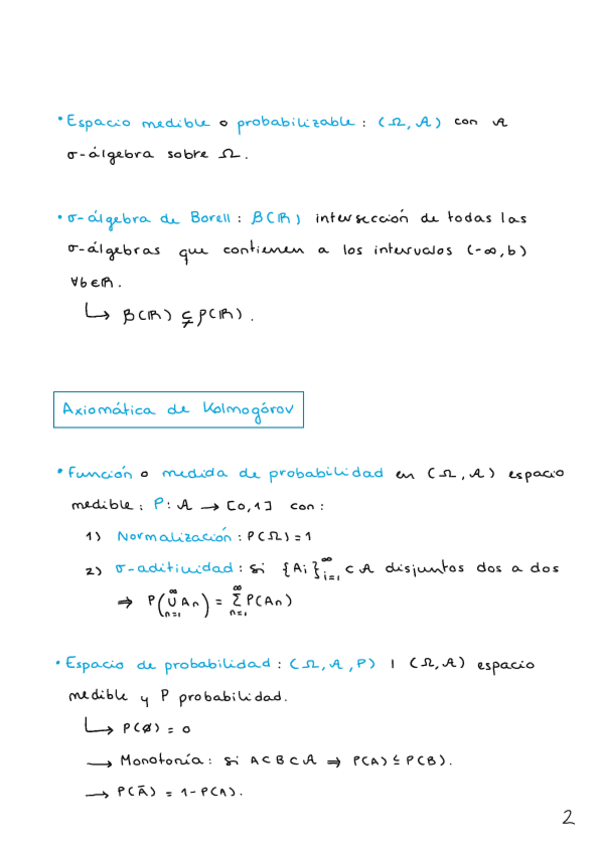 • Espacio medible o probabilizable : (Ω, A) con A
σ-álgebra sobre Ω.
• σ-álgebra de Borell : β(ℝ) intersección de todas las
σ-álgebras que contienen a los intervalos (-∞, b)
∀b∈ℝ.
↳ β(ℝ) ⊊ ρ(ℝ).
Axiomática de Kolmogórov
• Función o medida de probabilidad en (Ω, A) espacio
medible : P: A → [0,1] con :
1) Normalización : P(Ω) = 1
2) σ-aditividad : si {Ai}∞i=1 ⊂ A disjuntos dos a dos
⇒ P(∞∪n=1 An) = ∞Σn=1 P(An)
• Espacio de probabilidad : (Ω, A, P) | (Ω, A) espacio
medible y P probabilidad.
↳ P(∅) = 0
→ Monotonía : si A⊂B⊂A ⇒ P(A) ≤ P(B).
→ P(Ā) = 1-P(A).
2